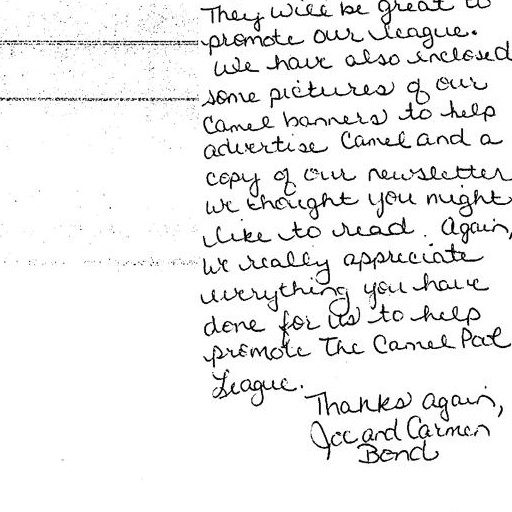 They will be great to
promote our league.
We have also inclosed
some pictures of our
Camel banners to help
advertise Camel and a
copy of our newsletter
we thought you might
like to read. Again,
we really appreciate
everything you have
done for us to help
promote The Camel Pool
League.
Thanks again,
Joe and Carmen
Bond